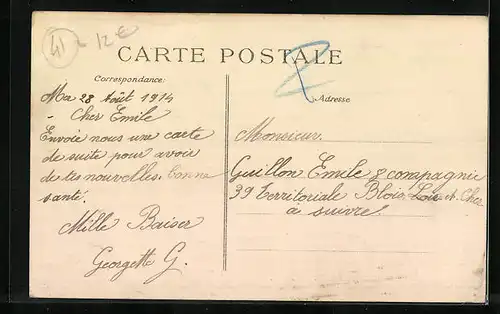 41 12€
CARTE POSTALE
Correspondance
Adresse
Ma 28 Août 1914
- Cher Emile
Envoie nous une carte
de suite pour avoir
de tes nouvelles. bonne
santé.
Mille Baiser
Georgette G.
Monsieur
Guillon Emile 8 compagnie
39 Territoriale Blois Loir et Cher
à suivre